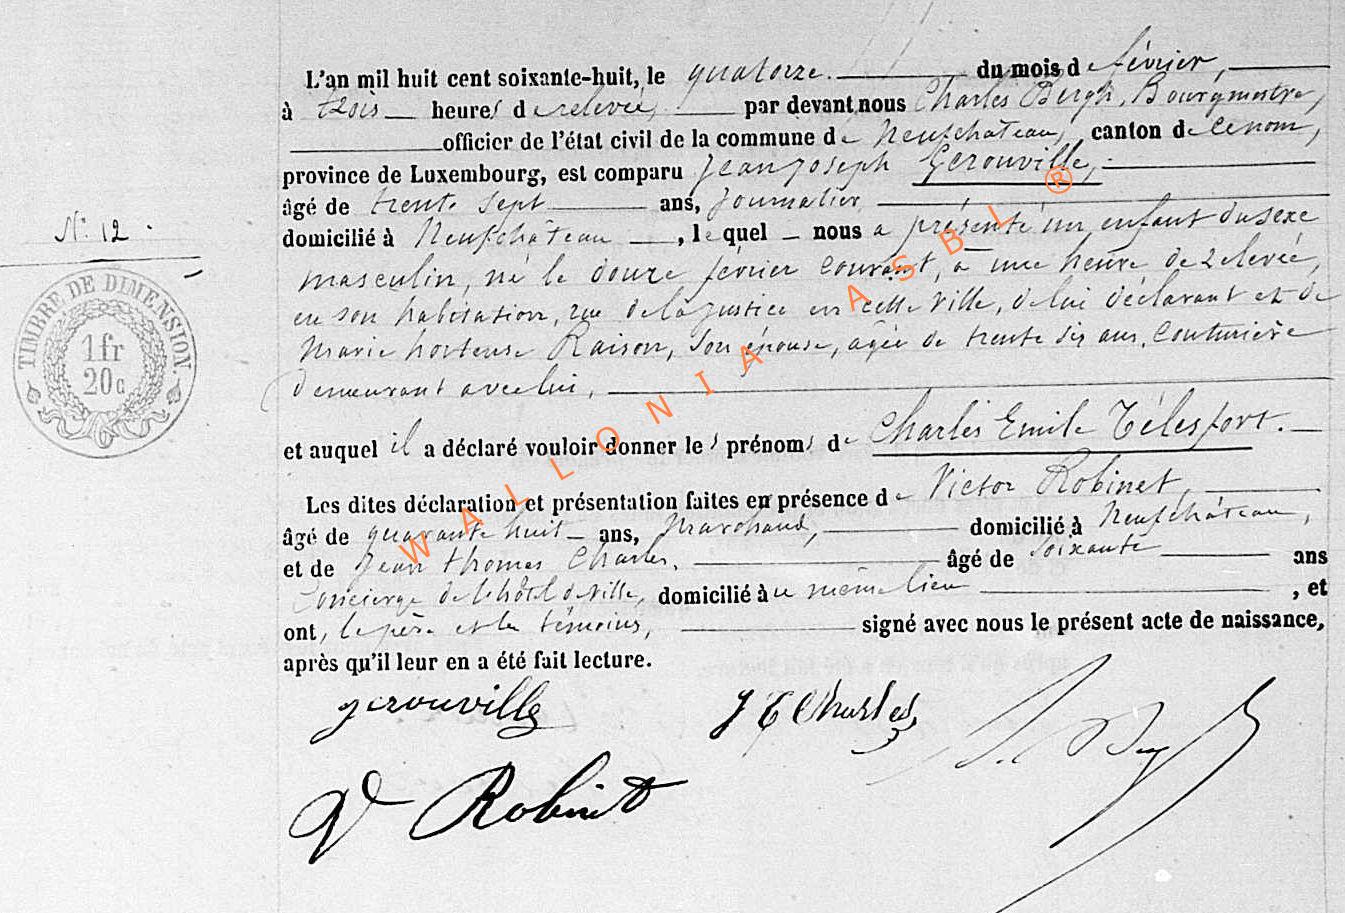 L'an mil huit cent soixante-huit, le quatorze du mois de février,
à trois heures de relevée, par devant nous Charles Bergh, Bourgmestre,
officier de l'état civil de la commune de Neufchâteau, canton de ce nom,
province de Luxembourg, est comparu Jean Joseph Gerouville,
âgé de trente sept ans, journalier
domicilié à Neufchâteau, lequel nous a présenté un enfant du sexe
N° 12.
masculin, né le douze février courant, à une heure de relevée,
en son habitation, rue de la justice en cette ville, de lui déclarant et de
Marie hortense Raison, son épouse, agée de trente six ans, couturière
demeurant avec lui,
TIMBRE DE DIMENSION.
1 fr
20 c
et auquel il a déclaré vouloir donner les prénoms de Charles Emile Télesfort.
Les dites déclaration et présentation faites en présence de Victor Robinet,
âgé de quarante huit ans, Marchand, domicilié à Neufchâteau,
et de Jean thomas Charles, âgé de soixante ans
Concierge de l'hôtel de ville, domicilié au même lieu, et
ont, le père et les témoins, signé avec nous le présent acte de naissance,
après qu'il leur en a été fait lecture.
gerouville
J T Charles
V Robinet
WALLONIA ASBL ®